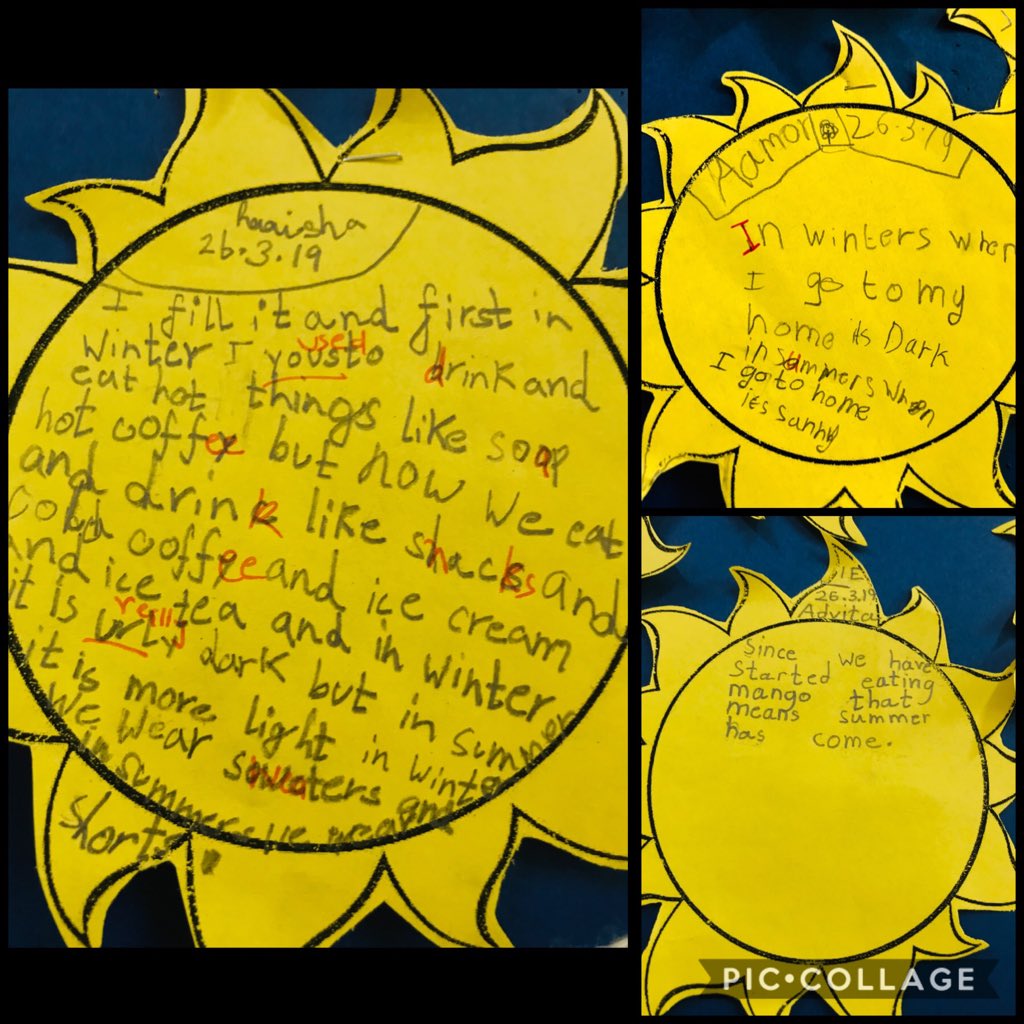 haaisha
26.3.19
I fill it and first in
used
winter I yousto drink and
eat hot things like soap
hot coffee but now we eat
and drink like snacks and
cold coffee and ice cream
and ice tea and in winter
really
it is dark but in summer
it is more light in winter
we wear sweaters and
in summer we wear
shorts.
Aamor 26.3.19
In winters when
I go to my
home its Dark
in summers when
I go to home
its sunny
26.3.19
Advita
Since we have
started eating
mango that
means summer
has come.
PIC•COLLAGE